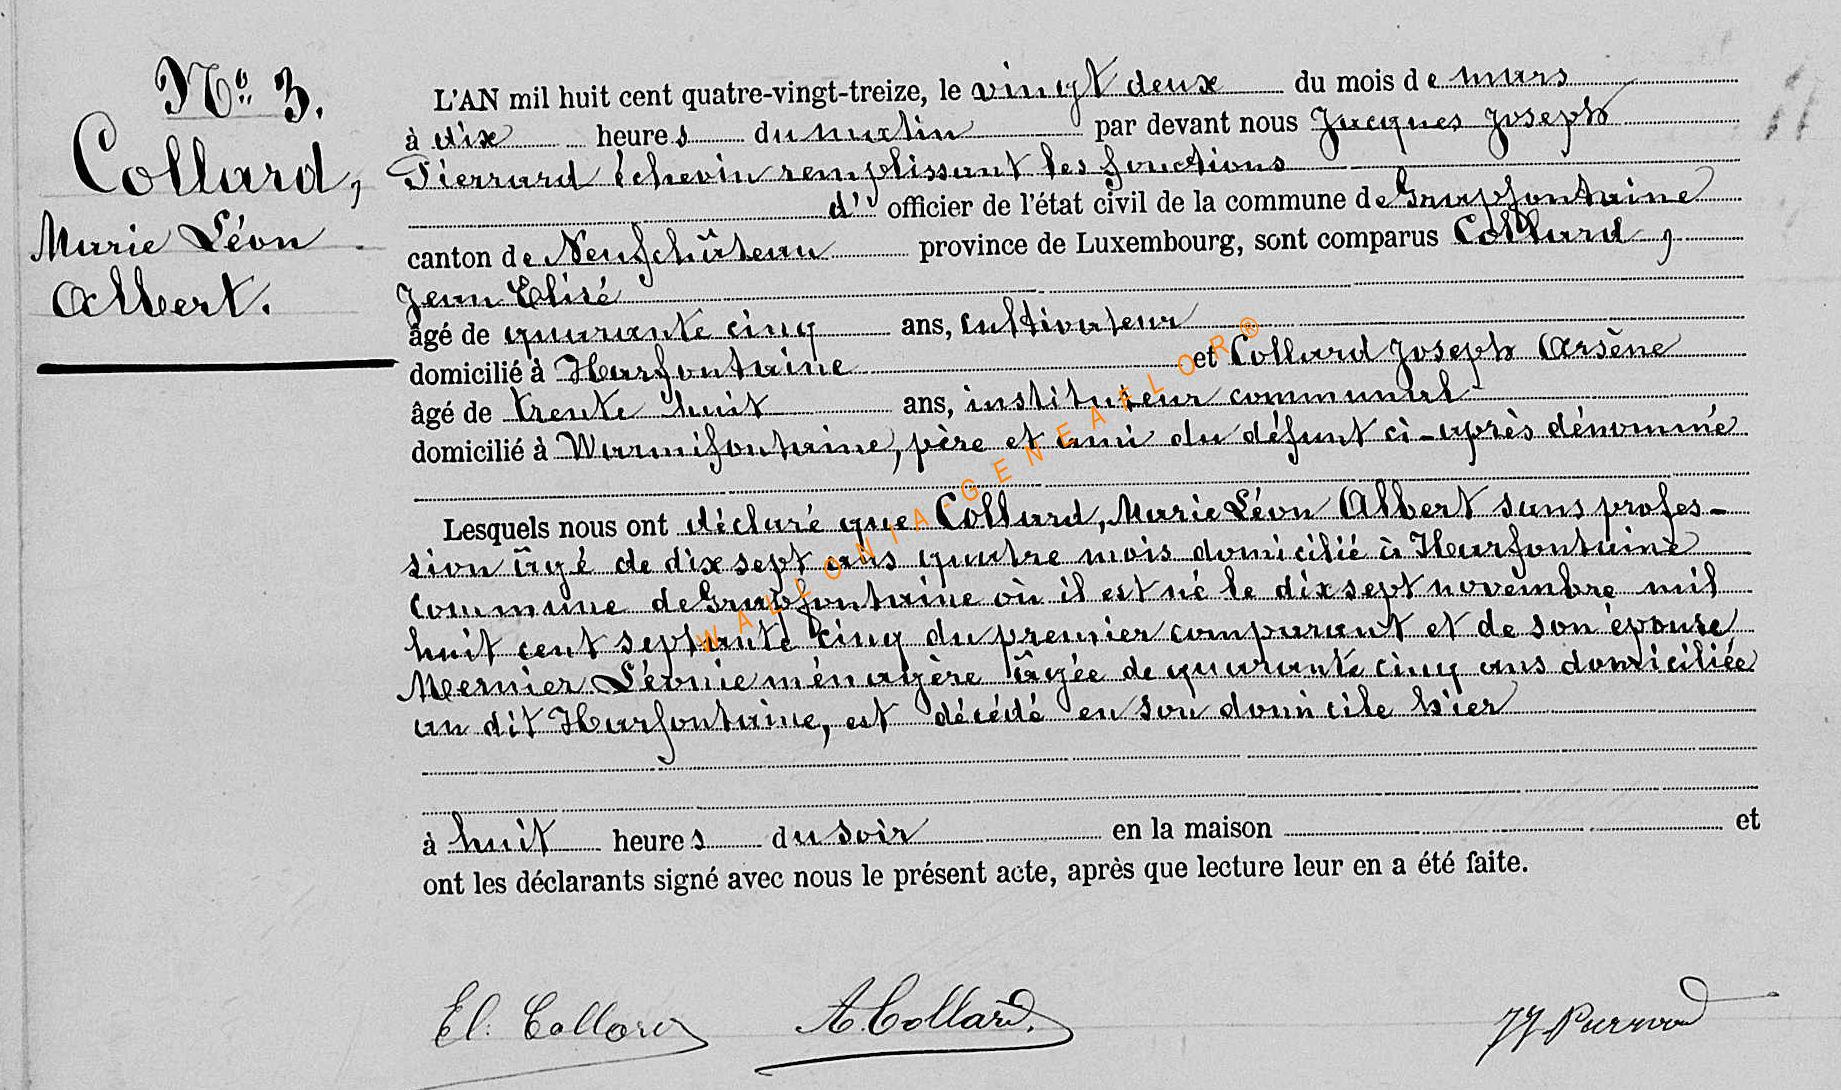 No. 3.
Collard,
Marie Léon
Albert.
L'AN mil huit cent quatre-vingt-treize, le vingt deux du mois de mars
à dix heures du matin par devant nous Jacques Joseph
Pierrard Echevin remplissant les fonctions
d' officier de l'état civil de la commune de Grapfontaine
canton de Neufchâteau province de Luxembourg, sont comparus Collard,
Jean Elisé
âgé de quarante cinq ans, cultivateur
domicilié à Harfontaine et Collard Joseph Arsène
âgé de trente huit ans, instituteur communal
domicilié à Warmifontaine, père et ami du défunt ci-après dénommé
Lesquels nous ont déclaré que Collard, Marie Léon Albert sans profes-
sion âgé de dix sept ans quatre mois domicilié à Harfontaine
commune de Grapfontaine où il est né le dix sept novembre mil
huit cent septante cinq du premier comparant et de son épouse
Mernier Léonie ménagère âgée de quarante cinq ans domiciliée
au dit Harfontaine, est décédé en son domicile hier
à huit heures du soir en la maison et
ont les déclarants signé avec nous le présent acte, après que lecture leur en a été faite.
El. Collard A. Collard. JJ Pierrard
WALLONIA-GENEAFLOR®